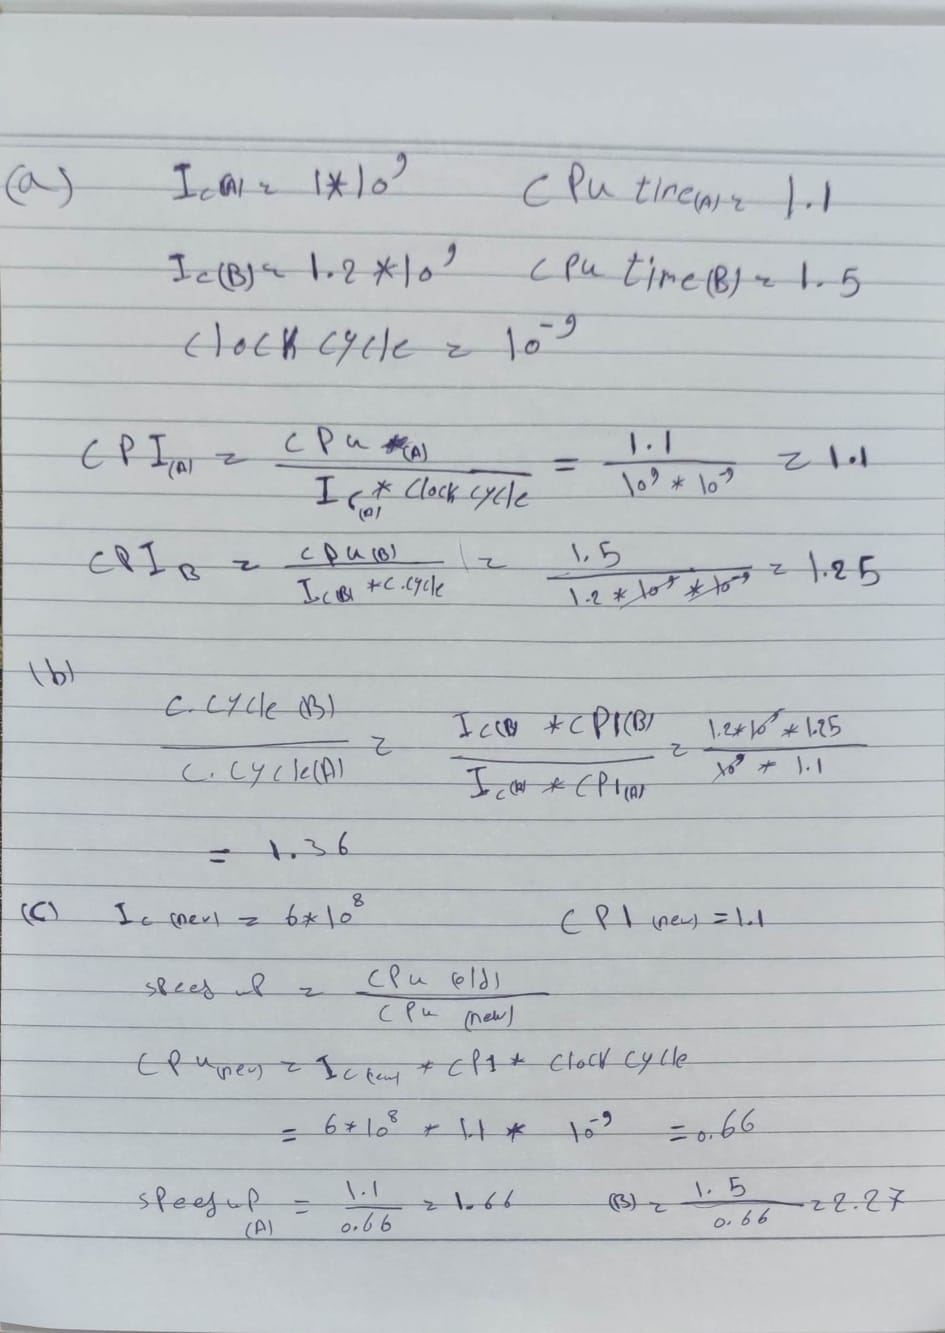 (a) Ic(A) = 1*10^9 CPU time(A) = 1.1
Ic(B) = 1.2*10^9 CPU time(B) = 1.5
clock cycle = 10^-9
CPI(A) = CPU (A) / Ic(A) * Clock cycle = 1.1 / 10^9 * 10^-9 = 1.1
CPI B = CPU(B) / Ic(B) * C.cycle = 1.5 / 1.2 * 10^9 * 10^-9 = 1.25
(b)
C. cycle (B) / C. cycle(A) = Ic(B) * CPI(B) / Ic(A) * CPI(A) = 1.2*10^9 * 1.25 / 10^9 * 1.1
= 1.36
(C) Ic (new) = 6*10^8 CPI (new) = 1.1
speed up = CPU (old) / CPU (new)
CPU(new) = Ic(new) * CPI * Clock cycle
= 6*10^8 * 1.1 * 10^-9 = 0.66
speed up (A) = 1.1 / 0.66 = 1.66 (B) = 1.5 / 0.66 = 2.27